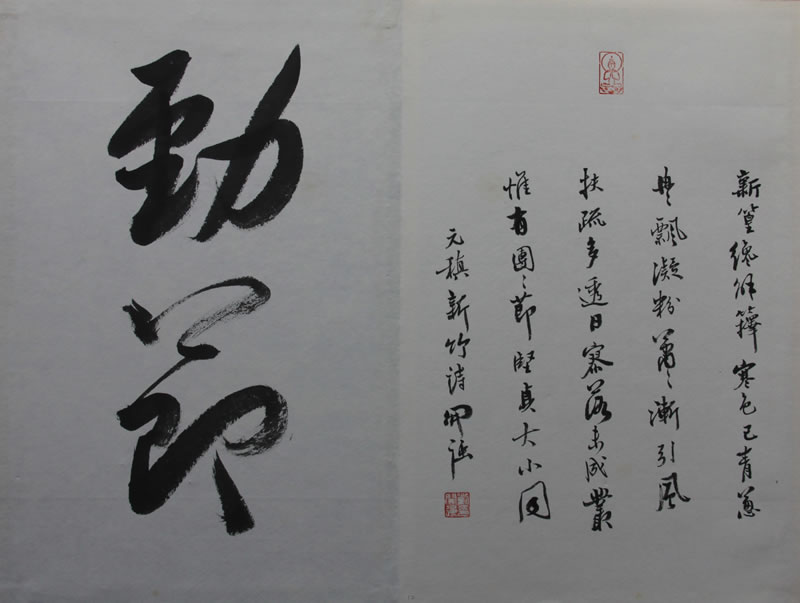 新篁纔解籜寒色已青蔥
冉〻飄凝粉蕭〻漸引風
扶疏多透日寥落未成叢
惟有團〻節堅貞大小同
元稹新竹诗
勁節